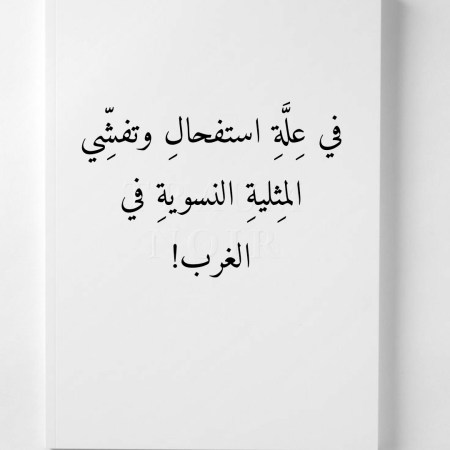 في عِلَّةِ استفحالِ وتفشِّي
المِثليةِ النسويةِ في
الغرب!